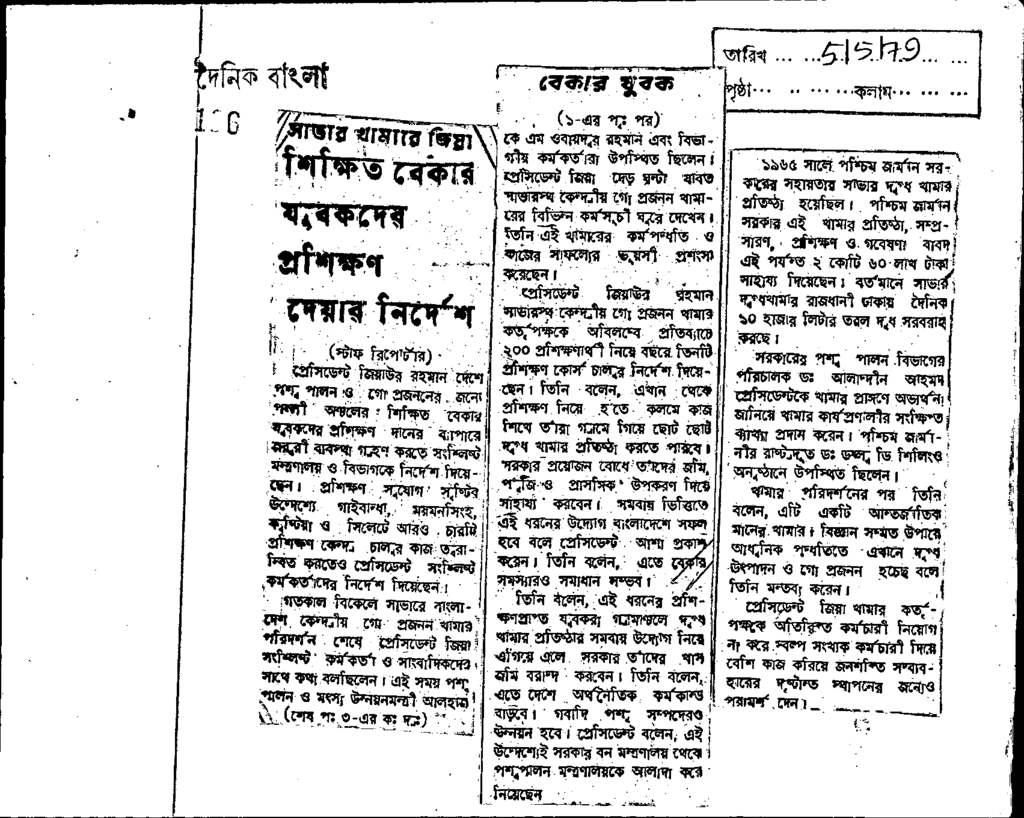 দৈনিক বাংলা
তারিখ ... ... 5/5/79 ... ...
পৃষ্ঠা... .. ... ...কলাম... ... ...
সাভার খামারে জিয়া
শিক্ষিত বেকার
যুবকদের
প্রশিক্ষণ
দেয়ার নির্দেশ
(স্টাফ রিপোর্টার)
প্রেসিডেন্ট জিয়াউর রহমান দেশে
পশু পালন ও গো প্রজননের জন্যে
পল্লী অঞ্চলের শিক্ষিত বেকার
যুবকদের প্রশিক্ষণ দানের ব্যাপারে
জরুরী ব্যবস্থা গ্রহণ করতে সংশ্লিষ্ট
মন্ত্রণালয় ও বিভাগকে নির্দেশ দিয়ে-
ছেন। প্রশিক্ষণ সুযোগ সৃষ্টির
উদ্দেশ্যে গাইবান্ধা, ময়মনসিংহ,
কুষ্টিয়া ও সিলেটে আরও চারটি
প্রশিক্ষণ কেন্দ্র চালুর কাজ ত্বরা-
ন্বিত করতেও প্রেসিডেন্ট সংশ্লিষ্ট
কর্মকর্তাদের নির্দেশ দিয়েছেন।
গতকাল বিকেলে সাভারে বাংলা-
দেশ কেন্দ্রীয় গো প্রজনন খামার
পরিদর্শন শেষে প্রেসিডেন্ট জিয়া
সংশ্লিষ্ট কর্মকর্তা ও সাংবাদিকদের
সাথে কথা বলছিলেন। এই সময় পশু
পালন ও মৎস্য উন্নয়নমন্ত্রী আলহাজ্ব
(শেষ পৃঃ ৩-এর কঃ দ্রঃ)
বেকার যুবক
(১-এর পৃঃ পর)
কে এম ওবায়দুর রহমান এবং বিভা-
গীয় কর্মকর্তারা উপস্থিত ছিলেন।
প্রেসিডেন্ট জিয়া দেড় ঘন্টা যাবত
সাভারস্থ কেন্দ্রীয় গো প্রজনন খামা-
রের বিভিন্ন কর্মসূচী ঘুরে দেখেন।
তিনি এই খামারের কর্মপদ্ধতি ও
কাজের সাফল্যের ভূয়সী প্রশংসা
করেছেন।
প্রেসিডেন্ট জিয়াউর রহমান
সাভারস্থ কেন্দ্রীয় গো প্রজনন খামার
কর্তৃপক্ষকে অবিলম্বে প্রতিব্যাচে
২০০ প্রশিক্ষণার্থী নিয়ে বছরে তিনটি
প্রশিক্ষণ কোর্স চালুর নির্দেশ দিয়ে-
ছেন। তিনি বলেন, এখান থেকে
প্রশিক্ষণ নিয়ে হাতে কলমে কাজ
শিখে তাঁরা গ্রামে গিয়ে ছোট ছোট
দুগ্ধ খামার প্রতিষ্ঠা করতে পারবে।
সরকার প্রয়োজন বোধে তাঁদের জমি,
পুঁজি ও প্রাসঙ্গিক উপকরণ দিয়ে
সাহায্য করবেন। সমবায় ভিত্তিতে
এই ধরনের উদ্যোগ বাংলাদেশে সফল
হবে বলে প্রেসিডেন্ট আশা প্রকাশ
করেন। তিনি বলেন, এতে বেকার
সমস্যারও সমাধান সম্ভব।
তিনি বলেন, এই ধরনের প্রশি-
ক্ষণপ্রাপ্ত যুবকরা গ্রামাঞ্চলে দুগ্ধ
খামার প্রতিষ্ঠার সমবায় উদ্যোগ নিয়ে
এগিয়ে এলে সরকার তাঁদের খাস
জমি বরাদ্দ করবেন। তিনি বলেন,
এতে দেশে অর্থনৈতিক কর্মকান্ড
বাড়বে। গবাদি পশু সম্পদেরও
উন্নয়ন হবে। প্রেসিডেন্ট বলেন, এই
উদ্দেশ্যেই সরকার বন মন্ত্রণালয় থেকে
পশুপালন মন্ত্রণালয়কে আলাদা করে
নিয়েছেন
১৯৬৫ সালে পশ্চিম জার্মান সর-
কারের সহায়তায় সাভার দুগ্ধ খামার
প্রতিষ্ঠা হয়েছিল। পশ্চিম জার্মান
সরকার এই খামার প্রতিষ্ঠা, সম্প্র-
সারণ, প্রশিক্ষণ ও গবেষণা বাবদ
এই পর্যন্ত ২ কোটি ৬০ লাখ টাকা
সাহায্য দিয়েছেন। বর্তমানে সাভার
দুগ্ধখামার রাজধানী ঢাকায় দৈনিক
১০ হাজার লিটার তরল দুধ সরবরাহ
করছে।
সরকারের পশু পালন বিভাগের
পরিচালক ডঃ আলাদীন আহমদ
প্রেসিডেন্টকে খামার প্রাঙ্গণে অভ্যর্থনা
জানিয়ে খামার কার্যপ্রণালীর সংক্ষিপ্ত
ব্যাখ্যা প্রদান করেন। পশ্চিম জার্মা-
নীর রাষ্ট্রদূত ডঃ ডব্লু ডি শিলিংও
অনুষ্ঠানে উপস্থিত ছিলেন।
খামার পরিদর্শনের পর তিনি
বলেন, এটি একটি আন্তর্জাতিক
মানের খামার। বিজ্ঞান সম্মত উপায়ে
আধুনিক পদ্ধতিতে এখানে দুগ্ধ
উৎপাদন ও গো প্রজনন হচ্ছে বলে
তিনি মন্তব্য করেন।
প্রেসিডেন্ট জিয়া খামার কর্তৃ-
পক্ষকে অতিরিক্ত কর্মচারী নিয়োগ
না করে স্বল্প সংখ্যক কর্মচারী দিয়ে
বেশি কাজ করিয়ে জনশক্তি সদ্ব্যব-
হারের দৃষ্টান্ত স্থাপনের জন্যেও
পরামর্শ দেন।